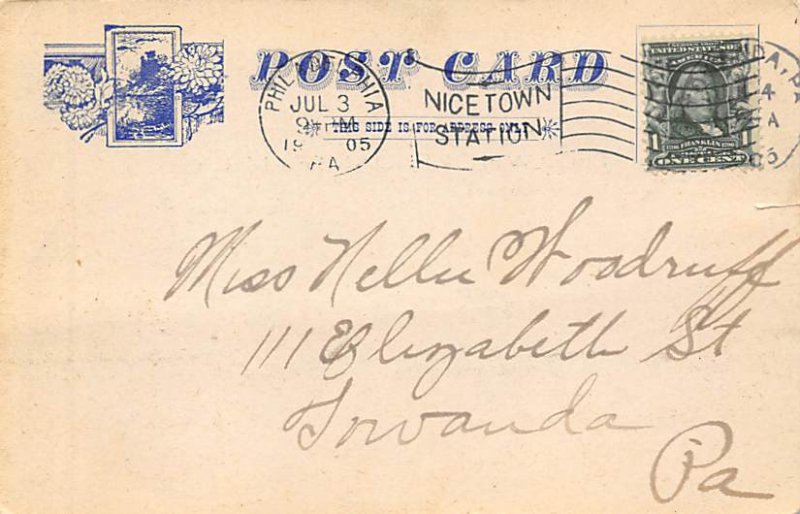 POST CARD
THIS SIDE IS FOR ADDRESS ONLY
PHILADELPHIA
JUL 3
9 M
1905
PA
NICETOWN
STATION
DA, PA
4
A
05
UNITED STATES OF
AMERICA
1 FRANKLIN 1
ONE CENT
Miss Nellie Woodruff
111 Elizabeth St
Towanda
Pa